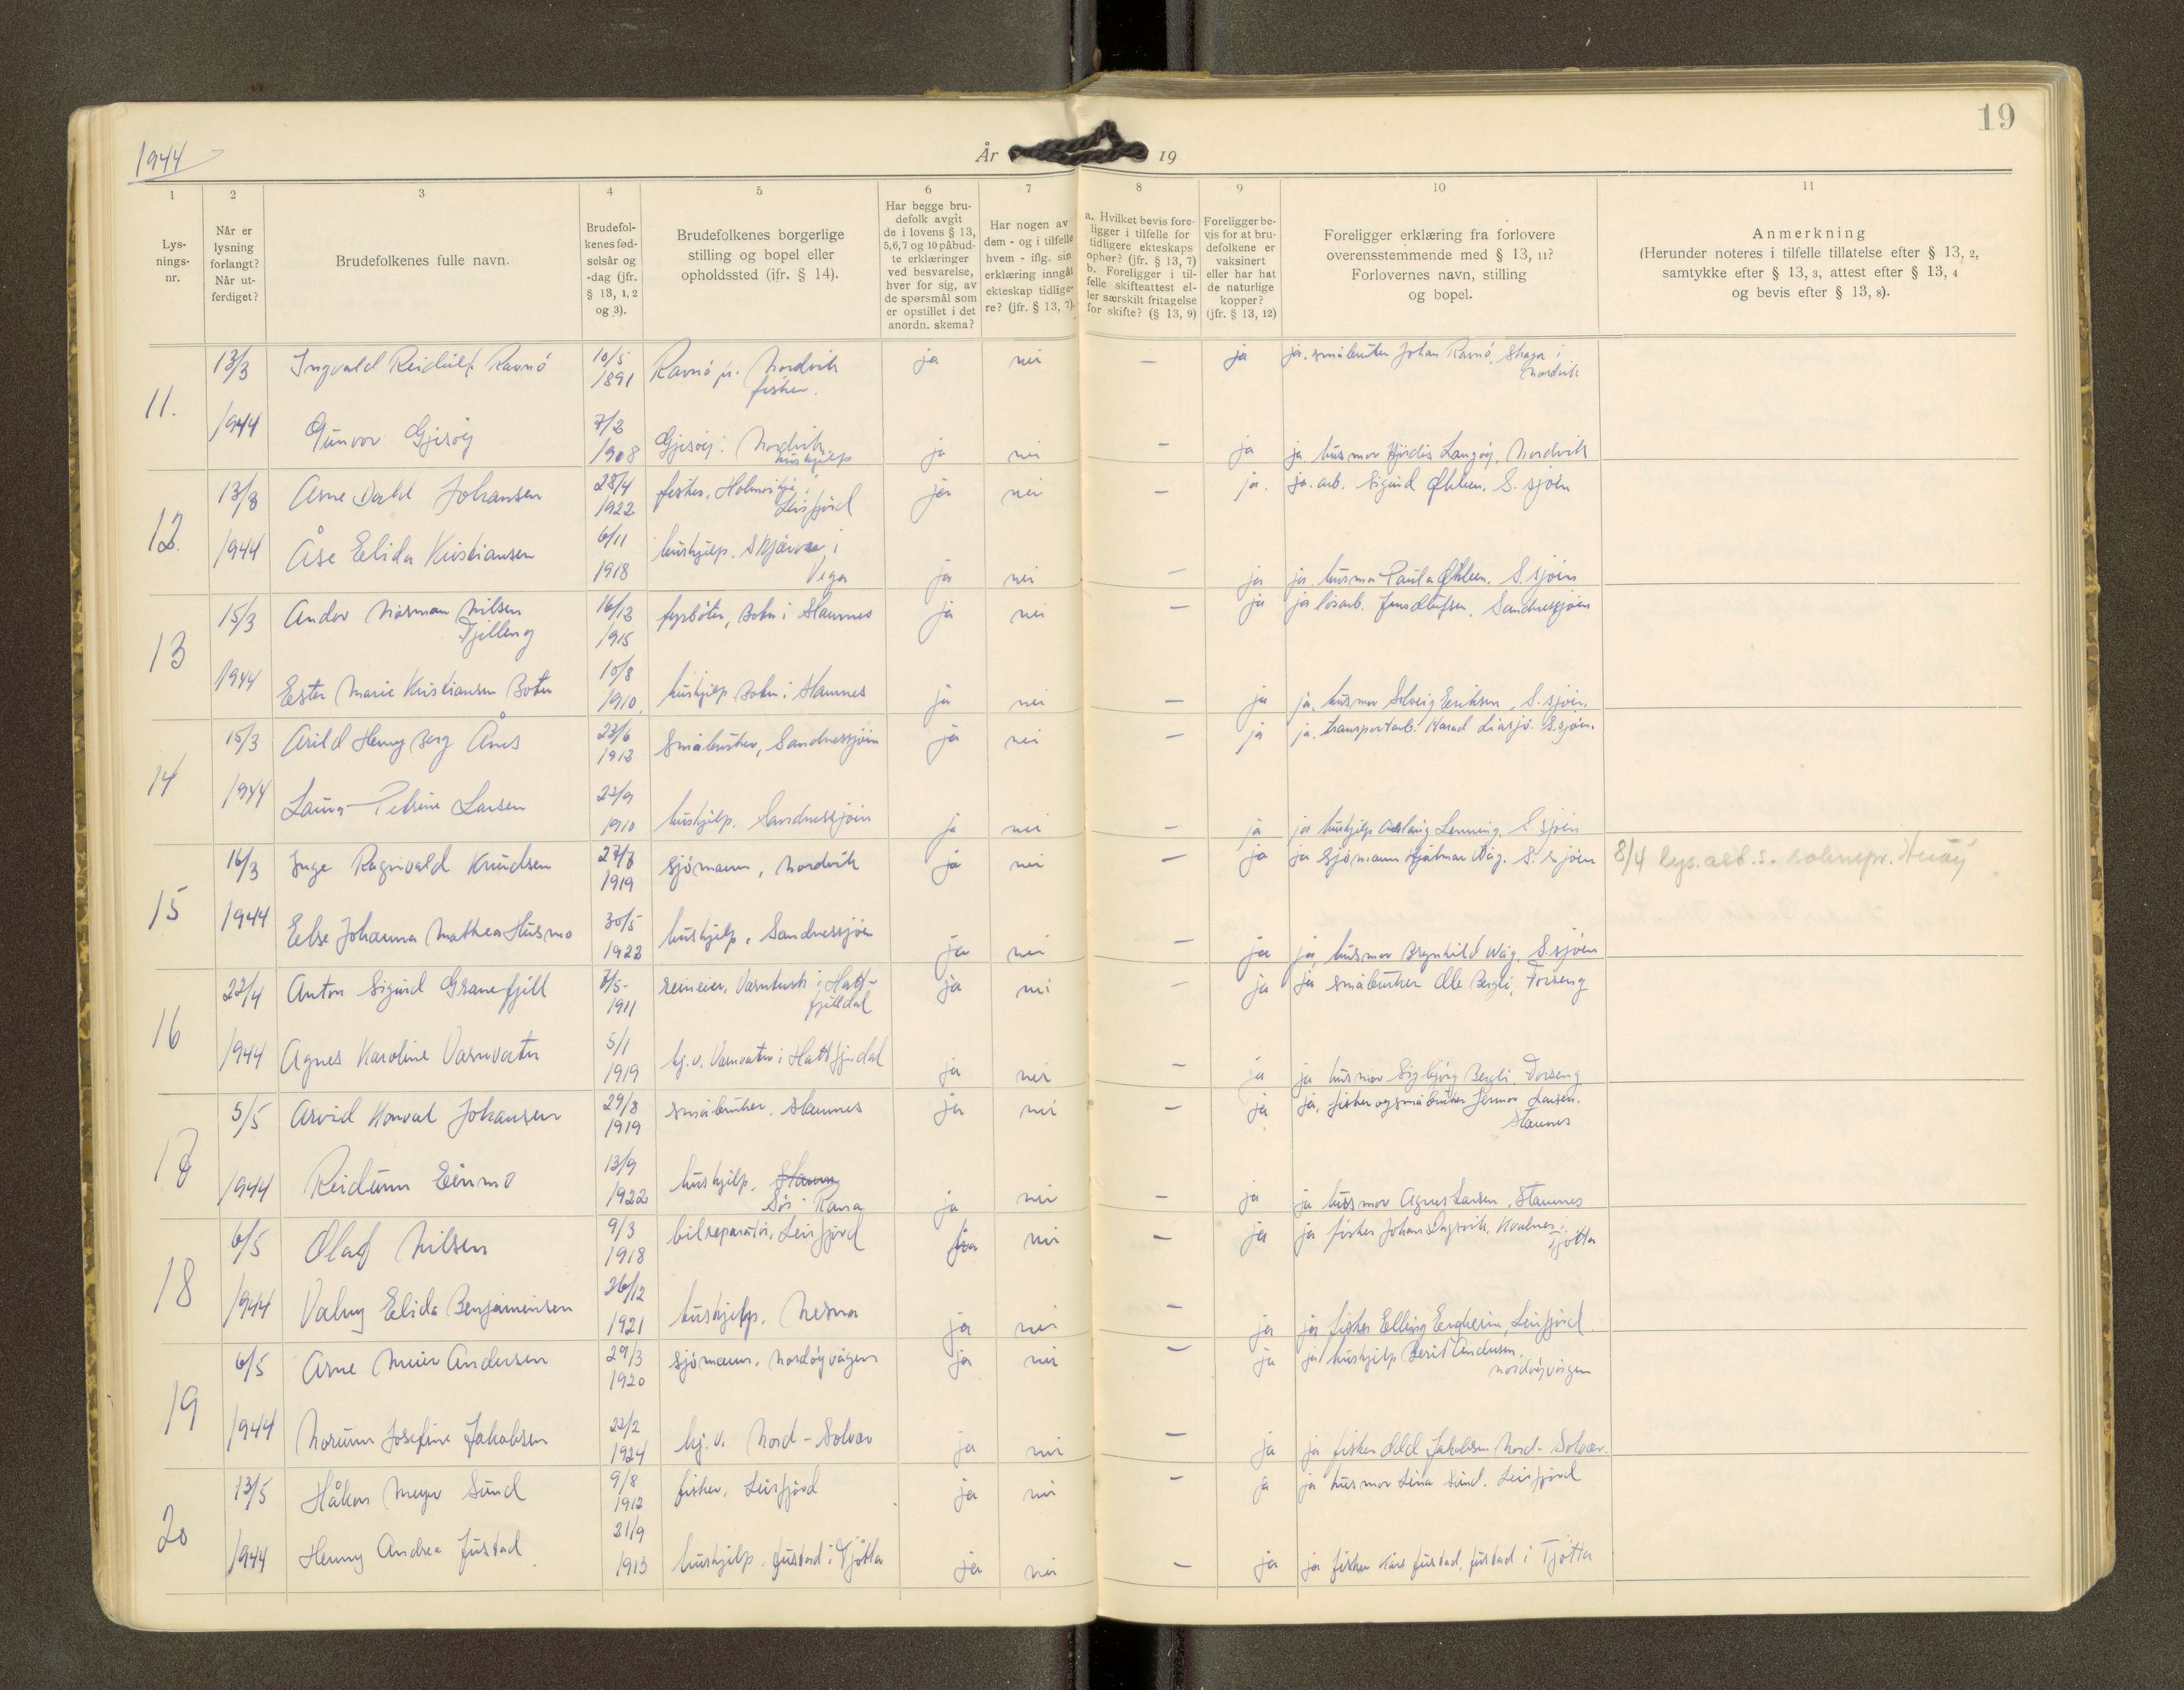 19
1944
År 19
1 2 3 4 5 6 7 8 9 10 11
Lys-
nings-
nr.
Når er
lysning
forlangt?
Når ut-
ferdiget?
Brudefolkenes fulle navn.
Brudefol-
kenes fød-
selsår og
-dag (jfr.
§ 13, 1, 2
og 3).
Brudefolkenes borgerlige
stilling og bopel eller
opholdssted (jfr. § 14).
Har begge bru-
defolk avgit
de i lovens § 13,
5,6,7 og 10 påbud-
te erklæringer
ved besvarelse,
hver for sig, av
de spørsmål som
er opstillet i det
anordn. skema?
Har nogen av
dem - og i tilfelle
hvem - iflg. sin
erklæring inngåt
ekteskap tidlige-
re? (jfr. § 13, 7).
a. Hvilket bevis fore-
ligger i tilfelle for
tidligere ekteskaps
ophør? (jfr. § 13, 7)
b. Foreligger i til-
felle skifteattest el-
ler særskilt fritagelse
for skifte? (§ 13, 9)
Foreligger be-
vis for at bru-
defolkene er
vaksinert
eller har hat
de naturlige
kopper?
(jfr. § 13, 12)
Foreligger erklæring fra forlovere
overensstemmende med § 13, 11?
Forlovernes navn, stilling
og bopel.
Anmerkning
(Herunder noteres i tilfelle tillatelse efter § 13, 2,
samtykke efter § 13, 3, attest efter § 13, 4
og bevis efter § 13, 8).
11. 13/3 Ingvald Reidulf Ravnö 10/5 1891 Ravnö pr. Nordvik fisker. ja nei — ja ja. småbruker Johan Ravnö, Skaga i Nordvik
1944 Gunvor Gjesöy 7/2 1908 Gjesöy i Nordvik hushjelp ja nei — ja ja. husmor Hjördis Langöy, Nordvik
12. 13/3 Arne Dahl Johansen 28/4 1922 fisker, Leirfjord ja nei — ja. ja. arb. Sigurd Øhlen. S.sjöen
1944 Åse Elida Kristiansen 6/11 1918 hushjelp. Skjærvær i Vega ja nei — ja ja. husmor Paula Øhlen. S.sjöen
13 15/3 Andor Norman Nilsen Fjelleng 16/12 1915 fyrböter, Botn i Stamnes ja nei — ja ja lösarb. Jens Olufsen, Sandnessjöen
1944 Ester Marie Kristiansen Botn 10/8 1910. hushjelp Botn i Stamnes ja nei — ja ja. husmor Solveig Eriksen, S.sjöen.
14 15/3 Arild Henry Berg Ånes 23/6 1912 småbruker, Sandnessjöen ja nei — ja ja. transportarb. Harad Liasjö. S.sjöen.
1944 Laura Petrine Larsen 22/9 1910 hushjelp. Sandnessjöen ja nei — ja ja hushjelp Aslaug Lenning. S.sjöen
15 16/3 Inge Ragnvald Knudsen 27/7 1919 sjömann, Nordvik ja nei — ja ja sjömann Hjalmar Wåg. S.sjöen 8/4 lys.att. s. sokneprest. Heröy
1944 Else Johanna Mathea Husmo 30/5 1922 hushjelp, Sandnessjöen ja nei — ja ja, husmor Brynhild Wåg. S.sjöen
16 22/4 Anton Sigurd Granefjell 7/5- 1911 reineier, Varntresk i Hatt-fjelldal ja nei — ja ja småbruker Ole Bergli, Forseng
1944 Agnes Karoline Varnvatn 5/1 1919 hj.v. Varnvatn i Hattfjelldal ja nei — ja ja husmor Sigbjörg Bergli, Forseng
17 5/5 Arvid Konval Johansen 29/8 1919 småbruker. Stamnes ja nei — ja ja, fisker og småbruker Larsen. Stamnes
1944 Reidunn Einmo 13/9 1922 hushjelp, Stamn Sör-Rana ja nei — ja ja husmor Agnes Larsen, Stamnes
18 6/5 Olaf Nilsen 9/3 1918 bilreparatör, Leirfjord ja nei — ja ja fisker Johan Ingsvik, Kvalnes i Tjötta
1944 Valny Elida Benjaminsen 26/12 1921 hushjelp. Nesna ja nei — ja ja fisker Elling Engheim, Leirfjord.
19 6/5 Arne Meier Andersen 29/3 1920 sjömann. Nordöyvågen ja nei — ja ja hushjelp Berit Andersen, Nordöyvågen
1944 Norunn Josefine Jakobsen 22/2 1924 hj.v. Nord-Solvær ja nei — ja ja fisker Odd Jakobsen Nord-Solvær.
20 13/5 Håkon Meyer Sund 9/8 1912 fisker, Leirfjord ja nei — ja ja husmor Lina Sund. Leirfjord
1944 Henny Andrea Fustad 21/9 1913 hushjelp. Fustad i Tjötta ja nei — ja ja fisker Kåre Fustad. Fustad i Tjötta